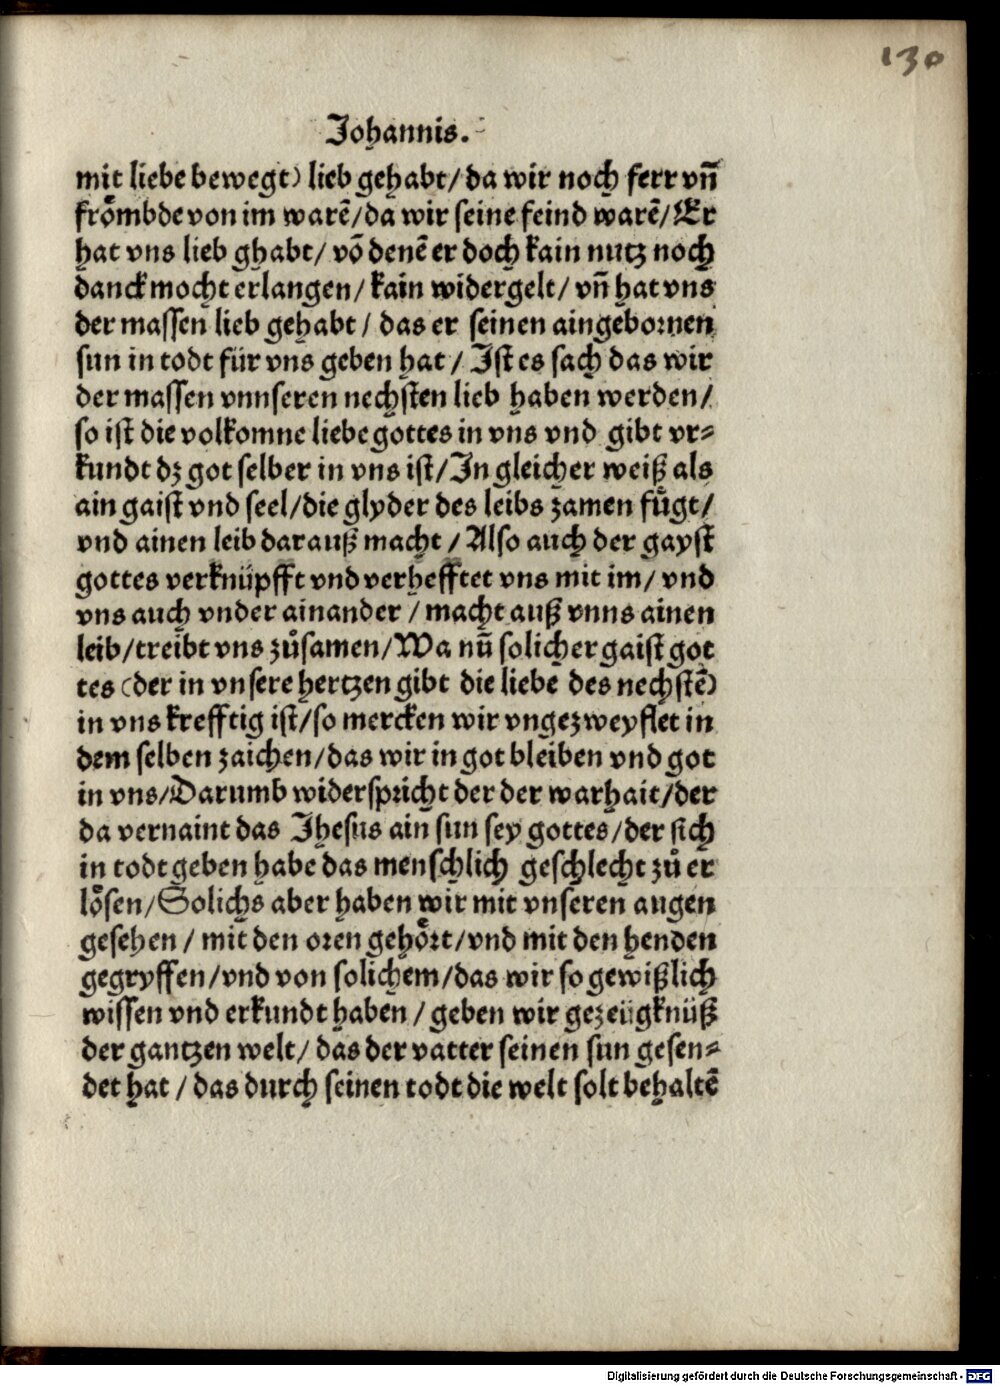 130
Johannis.
mit liebe bewegt) lieb gehabt/ da wir noch ferr vn̄
frömbde von im warē/ da wir seine feind warē/ Er
hat vns lieb ghabt/ võ denē er doch kain nutz noch
danck mocht erlangen/ kain widergelt/ vn̄ hat vns
der massen lieb gehabt/ das er seinen aingebornen
sun in todt für vns geben hat/ Ist es sach das wir
der massen vnnseren nechsten lieb haben werden/
so ist die volkomne liebe gottes in vns vnd gibt vr⸗
kundt dz got selber in vns ist/ In gleicher weiß als
ain gaist vnd seel/ die glyder des leibs zamen fůgt/
vnd ainen leib darauß macht/ Also auch der gayst
gottes verknüpfft vnd verhefftet vns mit im/ vnd
vns auch vnder ainander/ macht auß vnns ainen
leib/ treibt vns zůsamen/ Wa nū solicher gaist got
tes (der in vnsere hertzen gibt die liebe des nechstē)
in vns krefftig ist/ so mercken wir vngezweyflet in
dem selben zaichen/ das wir in got bleiben vnd got
in vns/ Darumb widerspricht der der warhait/ der
da vernaint das Jhesus ain sun sey gottes/ der sich
in todt geben habe das menschlich geschlecht zů er
lösen/ Solichs aber haben wir mit vnseren augen
gesehen/ mit den oren gehört/ vnd mit den henden
gegryffen/ vnd von solichem/ das wir so gewißlich
wissen vnd erkundt haben/ geben wir gezeügknüß
der gantzen welt/ das der vatter seinen sun gesen⸗
det hat/ das durch seinen todt die welt solt behaltē
Digitalisierung gefördert durch die Deutsche Forschungsgemeinschaft - DFG